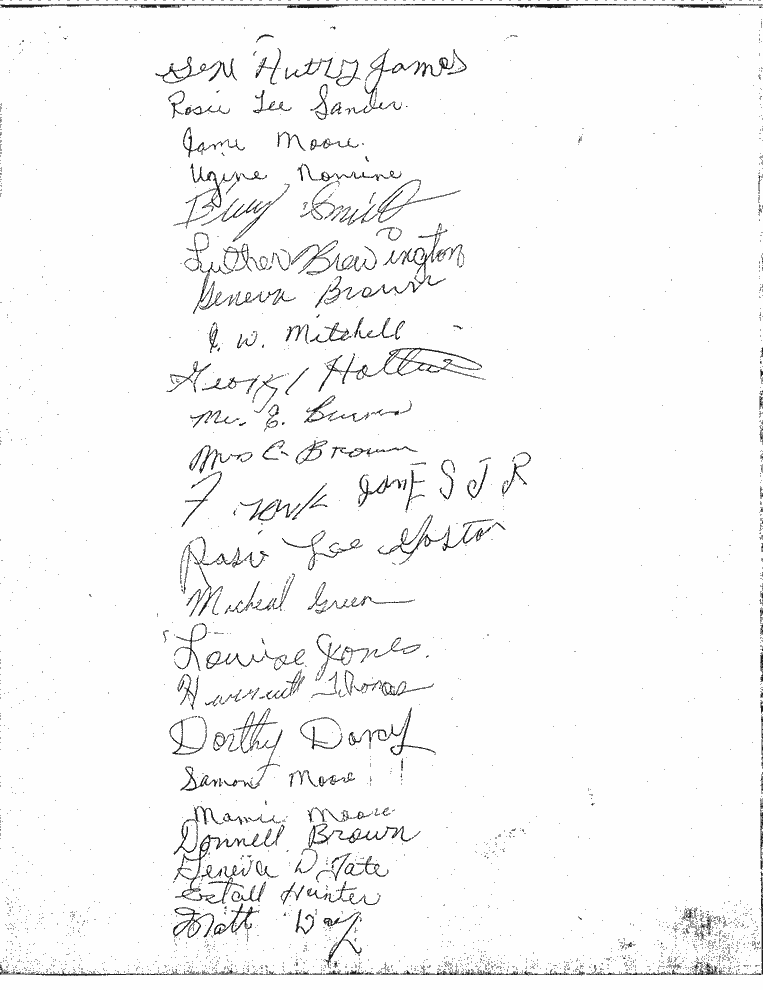 Gene Autry James
Rosie Lee Sander
Jame Moore.
Ugine Romine
Billy Smith
Luther Brewington
Geneva Brown
J. W. Mitchell
George
Mr. E. Burns
Mrs C. Brown
Frank James JR
Rosie Lee Gaston
Micheal Green
Louise Jones.
Harriett Thomas
Dorthy Darcy
Samon Moore
Mamie Moore
Donnell Brown
Geneva D Tate
Estall Hunter
Matt Day